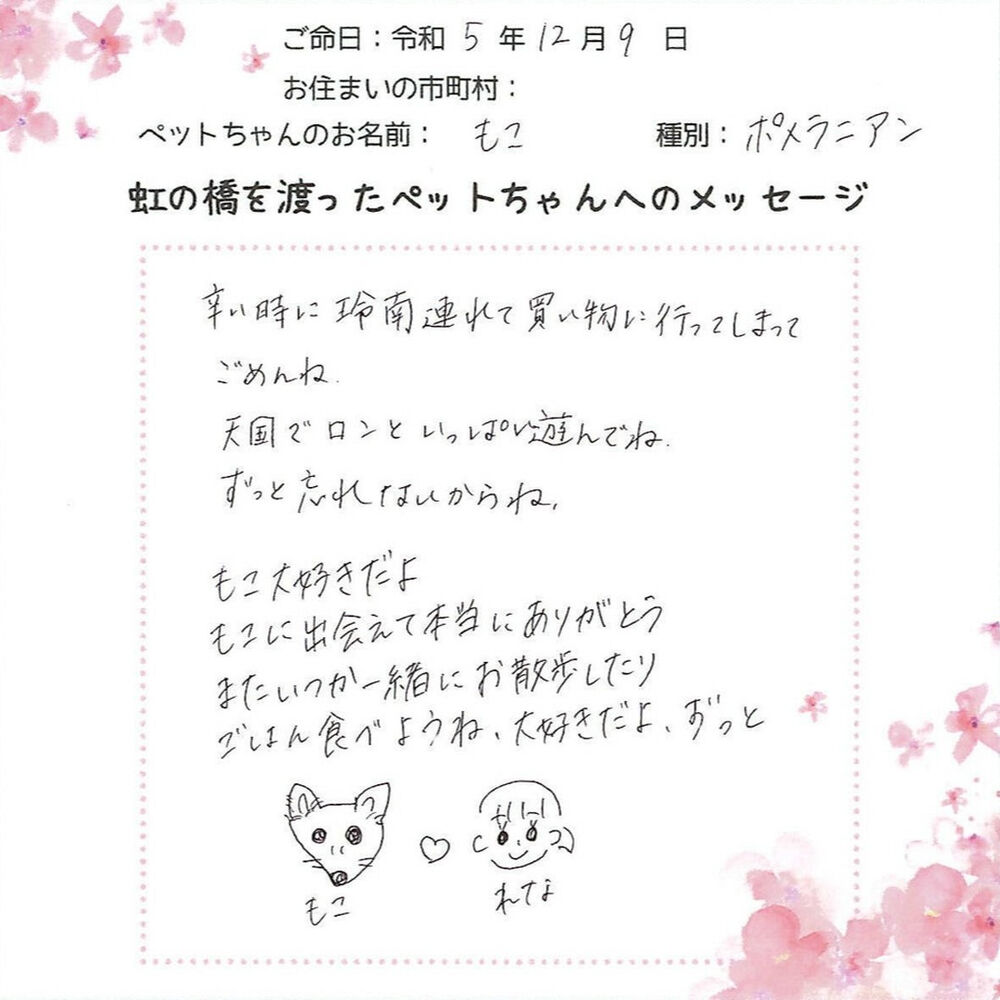 ご命日：令和 5 年 12 月 9 日
お住まいの市町村：
ペットちゃんのお名前： もこ 種別： ポメラニアン
虹の橋を渡ったペットちゃんへのメッセージ
辛い時に玲南連れて買い物に行ってしまって
ごめんね.
天国でロンといっぱい遊んでね.
ずっと忘れないからね.
もこ大好きだよ
もこに出会えて本当にありがとう
またいつか一緒にお散歩したり
ごはん食べようね、大好きだよ、ずっと
もこ ♡ れな